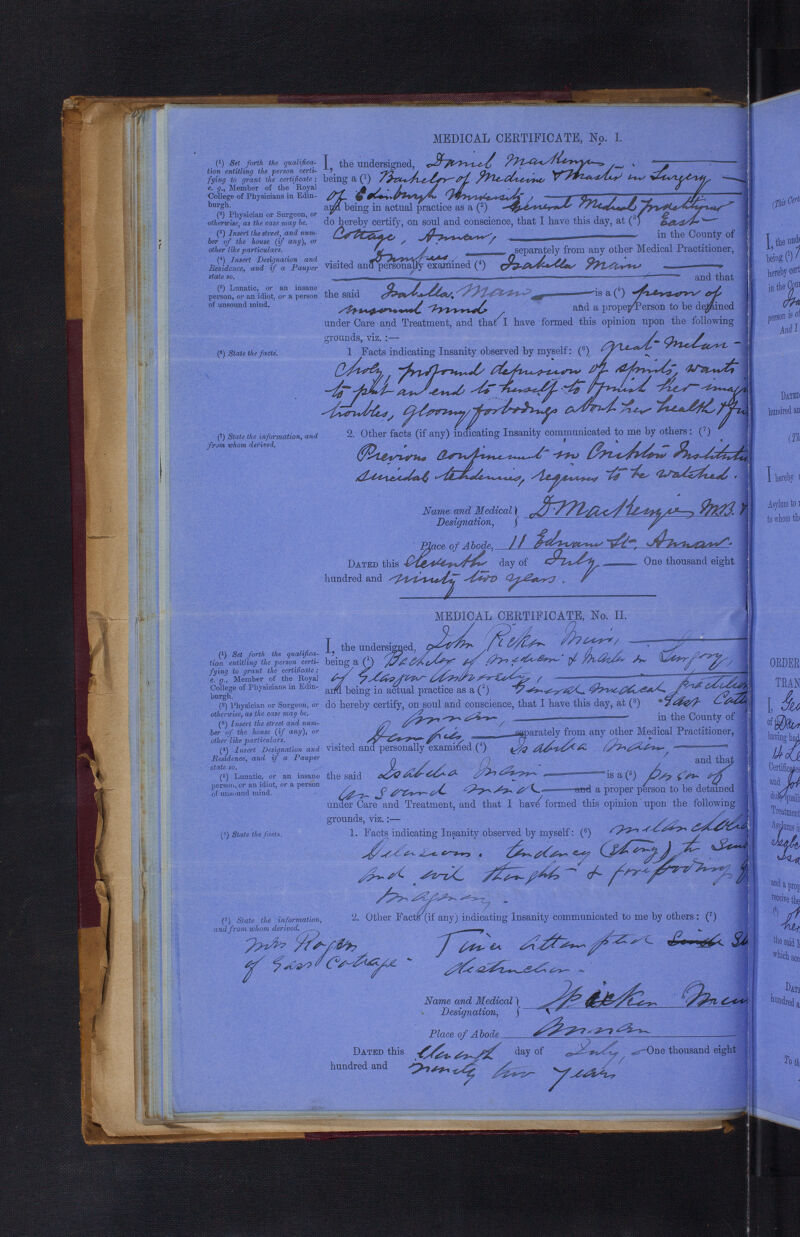 MEDICAL CERTIFICATE, No. I.
(¹) Set forth the qualifica-
tion entitling the person certi-
fying to grant the certificate;
e. g., Member of the Royal
College of Physicians in Edin-
burgh.
(²) Physician or Surgeon, or
otherwise, as the case may be.
(³) Insert the street, and num-
ber of the house (if any), or
other like particulars.
(⁴) Insert Designation and
Residence, and if a Pauper
state so.
(⁵) Lunatic, or an insane
person, or an idiot, or a person
of unsound mind.
I, the undersigned, Daniel MacKenzie
being a (¹) Bachelor of Medicine & Master in Surgery
of Edinburgh University
and being in actual practice as a (²) General Medical practitioner
do hereby certify, on soul and conscience, that I have this day, at (³) East
Cottage, Annan, in the County of
Dumfries, separately from any other Medical Practitioner,
visited and personally examined (⁴) Isabella Mann
and that
the said Isabella Mann is a (⁵) person of
unsound mind, and a proper Person to be detained
under Care and Treatment, and that I have formed this opinion upon the following
grounds, viz. :—
(⁶) State the facts.
1 Facts indicating Insanity observed by myself: (⁶) great Melan-
choly, profound depression of spirits, wants
to put an end to herself to finish her imagi
troubles, gloomy forbodings about her health & fu
(⁷) State the information, and
from whom derived.
2. Other facts (if any) indicating Insanity communicated to me by others: (⁷)
Previous confinement in Crichton Institute
suicidal tendencies, requires to be watched.
Name and Medical Designation, D. MacKenzie M.B. &
Place of Abode, 11 Edward St. Annan.
DATED this eleventh day of July One thousand eight
hundred and ninety two years.
MEDICAL CERTIFICATE, No. II.
(¹) Set forth the qualifica-
tion entitling the person certi-
fying to grant the certificate;
e. g., Member of the Royal
College of Physicians in Edin-
burgh.
(²) Physician or Surgeon, or
otherwise, as the case may be.
(³) Insert the street and num-
ber of the house (if any), or
other like particulars.
(⁴) Insert Designation and
Residence, and if a Pauper
state so.
(⁵) Lunatic, or an insane
person, or an idiot, or a person
of unsound mind.
I, the undersigned, John
being a (¹) Bachelor of medicine & Master in Surgery
of Glasgow University,
and being in actual practice as a (²) General medical practition
do hereby certify, on soul and conscience, that I have this day, at (³) East Cott
Annan, in the County of
Dumfries, separately from any other Medical Practitioner,
visited and personally examined (⁴) Isabella Mann,
and that
the said Isabella Mann is a (⁵) person of
unsound mind and a proper person to be detained
under Care and Treatment, and that I have formed this opinion upon the following
grounds, viz. :—
(⁶) State the facts.
1. Facts indicating Insanity observed by myself: (⁶) melancholia
Delusions. tendency (strong) to Sui
and evil thoughts & forebodings
(⁷) State the information,
and from whom derived.
2. Other Facts (if any) indicating Insanity communicated to me by others: (⁷)
Mrs Rogers
of East Cottage
attempted
destruction
Name and Medical Designation,
Place of Abode Annan
DATED this Eleventh day of July, One thousand eight
hundred and ninety two years
(This Cert
I, the unde
being (¹)
hereby cert
in the Cou
person is of
And I
DATED
hundred an
I hereby
Asylum to
to whom th
ORDER
TRAN
I,
having had
Certificat
and
Treatment
Asylums i
and a prop
receive the
the said
which acc
DATE
hundred a
To th